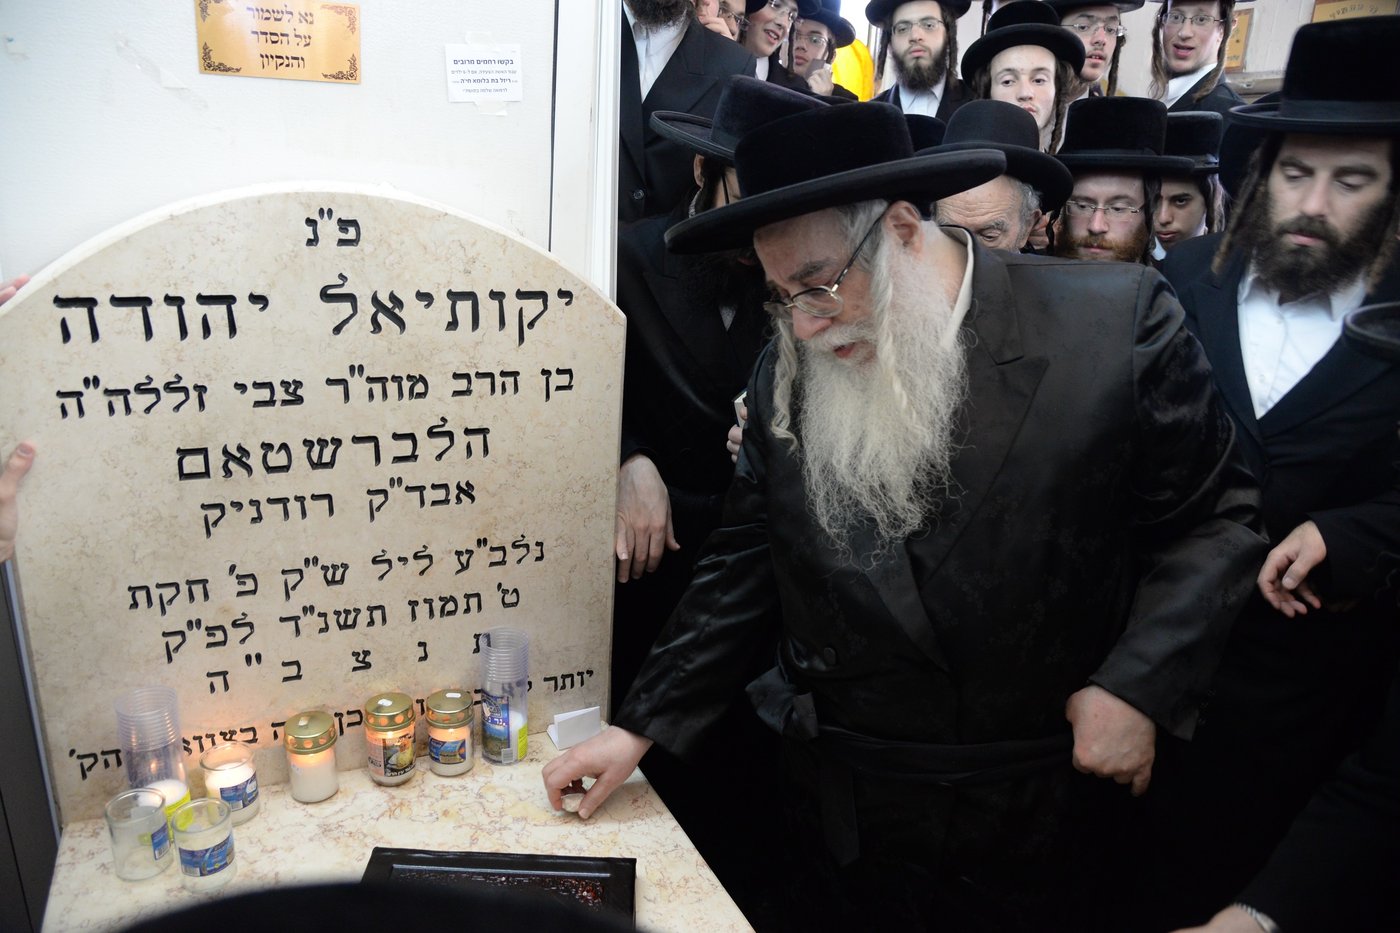 נא לשמור
על הסדר
והנקיון
בקשו רחמים מרובים
פ"נ
יקותיאל יהודה
בן הרב מוה"ר צבי זללה"ה
הלברשטאם
אבד"ק רודניק
נלב"ע ליל ש"ק פ' חקת
ט' תמוז תשנ"ד לפ"ק
ת נ צ ב "ה
יותר
הק'